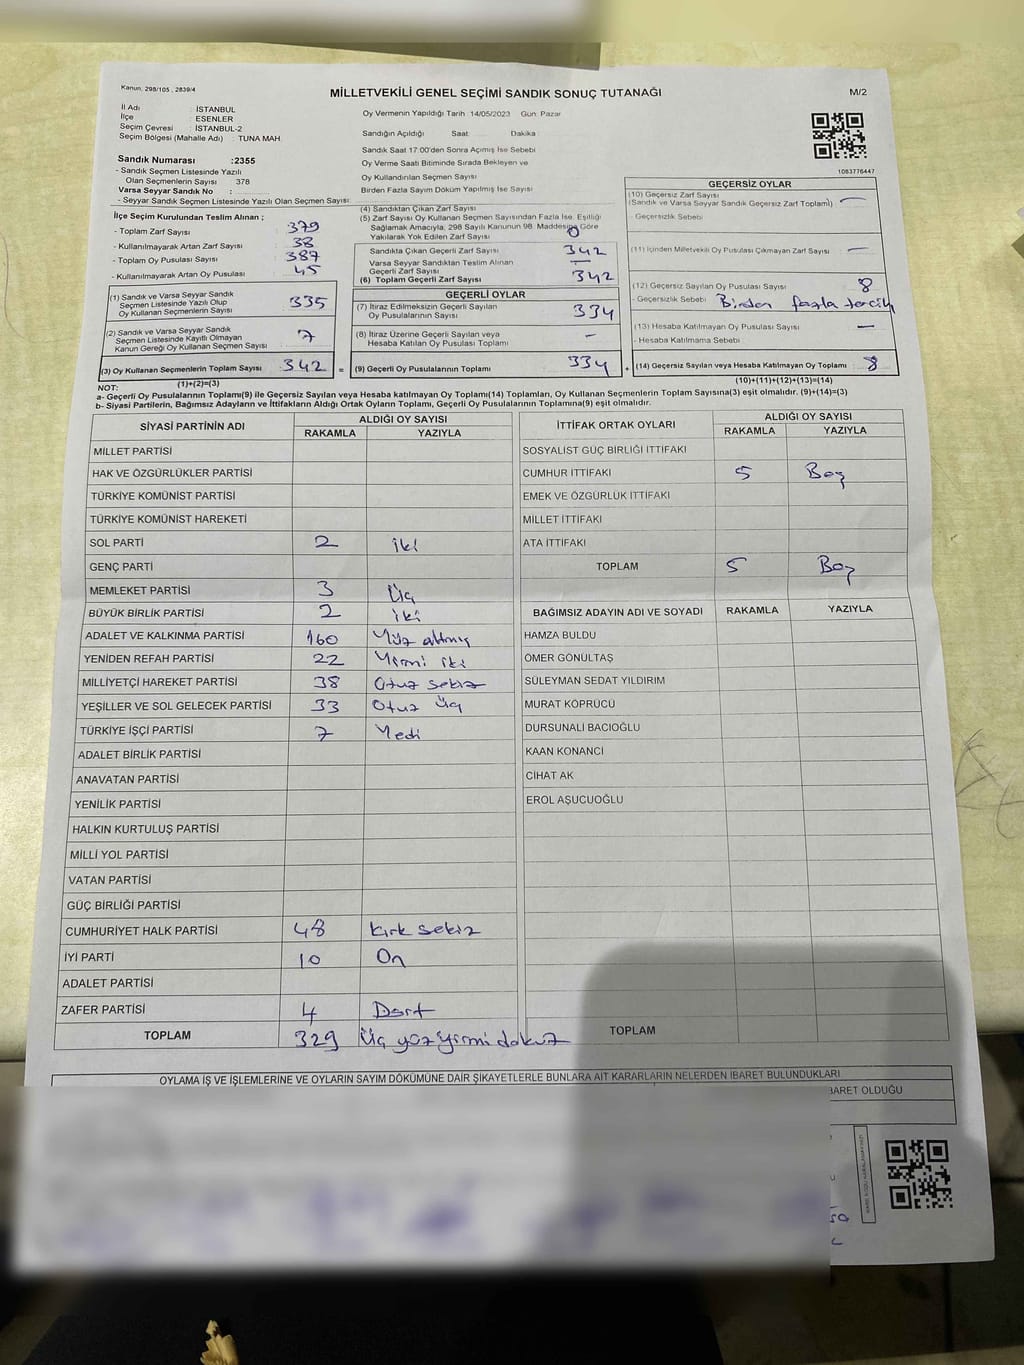 Kanun, 298/105 , 2839/4
MİLLETVEKİLİ GENEL SEÇİMİ SANDIK SONUÇ TUTANAĞI
M/2
İl Adı : İSTANBUL
İlçe : ESENLER
Seçim Çevresi : İSTANBUL-2
Seçim Bölgesi (Mahalle Adı) : TUNA MAH.
Sandık Numarası :2355
- Sandık Seçmen Listesinde Yazılı
Olan Seçmenlerin Sayısı 378
Varsa Seyyar Sandık No :
- Seyyar Sandık Seçmen Listesinde Yazılı Olan Seçmen Sayısı
Oy Vermenin Yapıldığı Tarih 14/05/2023 Gün: Pazar
Sandığın Açıldığı Saat Dakika :
Sandık Saat 17:00'den Sonra Açımış İse Sebebi
Oy Verme Saati Bitiminde Sırada Bekleyen ve
Oy Kullandırılan Seçmen Sayısı
Birden Fazla Sayım Döküm Yapılmış İse Sayısı
1083776447
İlçe Seçim Kurulundan Teslim Alınan ;
- Toplam Zarf Sayısı 379
- Kullanılmayarak Artan Zarf Sayısı 38
- Toplam Oy Pusulası Sayısı 387
- Kullanılmayarak Artan Oy Pusulası 45
(1) Sandık ve Varsa Seyyar Sandık
Seçmen Listesinde Yazılı Olup
Oy Kullanan Seçmenlerin Sayısı 335
(2) Sandık ve Varsa Seyyar Sandık
Seçmen Listesinde Kayıtlı Olmayan
Kanun Gereği Oy Kullanan Seçmen Sayısı 7
(3) Oy Kullanan Seçmenlerin Toplam Sayısı 342
(1)+(2)=(3)
(4) Sandıktan Çıkan Zarf Sayısı
(5) Zarf Sayısı Oy Kullanan Seçmen Sayısından Fazla İse, Eşitliği
Sağlamak Amacıyla; 298 Sayılı Kanunun 98. Maddesine Göre
Yakılarak Yok Edilen Zarf Sayısı 0
Sandıkta Çıkan Geçerli Zarf Sayısı 342
Varsa Seyyar Sandıktan Teslim Alınan
Geçerli Zarf Sayısı —
(6) Toplam Geçerli Zarf Sayısı 342
GEÇERLİ OYLAR
(7) İtiraz Edilmeksizin Geçerli Sayılan
Oy Pusulalarının Sayısı 334
(8) İtiraz Üzerine Geçerli Sayılan veya
Hesaba Katılan Oy Pusulası Toplamı -
= (9) Geçerli Oy Pusulalarının Toplamı 334 +
GEÇERSİZ OYLAR
(10) Geçersiz Zarf Sayısı
(Sandık ve Varsa Seyyar Sandık Geçersiz Zarf Toplamı) —
- Geçersizlik Sebebi
(11) İçinden Milletvekili Oy Pusulası Çıkmayan Zarf Sayısı —
(12) Geçersiz Sayılan Oy Pusulası Sayısı 8
- Geçersizlik Sebebi Birden fazla tercih
(13) Hesaba Katılmayan Oy Pusulası Sayısı —
- Hesaba Katılmama Sebebi
(14) Geçersiz Sayılan veya Hesaba Katılmayan Oy Toplamı 8
(10)+(11)+(12)+(13)=(14)
NOT:
a- Geçerli Oy Pusulalarının Toplamı(9) ile Geçersiz Sayılan veya Hesaba Katılmayan Oy Toplamı(14) Toplamları, Oy Kullanan Seçmenlerin Toplam Sayısına(3) eşit olmalıdır. (9)+(14)=(3)
b- Siyasi Partilerin, Bağımsız Adayların ve İttifakların Aldığı Ortak Oyların Toplamı, Geçerli Oy Pusulalarının Toplamına(9) eşit olmalıdır.
SİYASİ PARTİNİN ADI ALDIĞI OY SAYISI
RAKAMLA YAZIYLA
MİLLET PARTİSİ
HAK VE ÖZGÜRLÜKLER PARTİSİ
TÜRKİYE KOMÜNİST PARTİSİ
TÜRKİYE KOMÜNİST HAREKETİ
SOL PARTİ 2 iki
GENÇ PARTİ
MEMLEKET PARTİSİ 3 Üç
BÜYÜK BİRLİK PARTİSİ 2 iki
ADALET VE KALKINMA PARTİSİ 160 Yüz altmış
YENİDEN REFAH PARTİSİ 22 Yirmi iki
MİLLİYETÇİ HAREKET PARTİSİ 38 Otuz sekiz
YEŞİLLER VE SOL GELECEK PARTİSİ 33 Otuz Üç
TÜRKİYE İŞÇİ PARTİSİ 7 Yedi
ADALET BİRLİK PARTİSİ
ANAVATAN PARTİSİ
YENİLİK PARTİSİ
HALKIN KURTULUŞ PARTİSİ
MİLLİ YOL PARTİSİ
VATAN PARTİSİ
GÜÇ BİRLİĞİ PARTİSİ
CUMHURİYET HALK PARTİSİ 48 Kırk sekiz
İYİ PARTİ 10 On
ADALET PARTİSİ
ZAFER PARTİSİ 4 Dört
TOPLAM 329 Üç yüz yirmi dokuz
İTTİFAK ORTAK OYLARI ALDIĞI OY SAYISI
RAKAMLA YAZIYLA
SOSYALİST GÜÇ BİRLİĞİ İTTİFAKI
CUMHUR İTTİFAKI 5 Beş
EMEK VE ÖZGÜRLÜK İTTİFAKI
MİLLET İTTİFAKI
ATA İTTİFAKI
TOPLAM 5 Beş
BAĞIMSIZ ADAYIN ADI VE SOYADI RAKAMLA YAZIYLA
HAMZA BULDU
ÖMER GÖNÜLTAŞ
SÜLEYMAN SEDAT YILDIRIM
MURAT KÖPRÜCÜ
DURSUNALİ BACIOĞLU
KAAN KONANCİ
CİHAT AK
EROL AŞUCUOĞLU
TOPLAM
OYLAMA İŞ VE İŞLEMLERİNE VE OYLARIN SAYIM DÖKÜMÜNE DAİR ŞİKAYETLERLE BUNLARA AİT KARARLARIN NELERDEN İBARET BULUNDUKLARI
BARET OLDUĞU